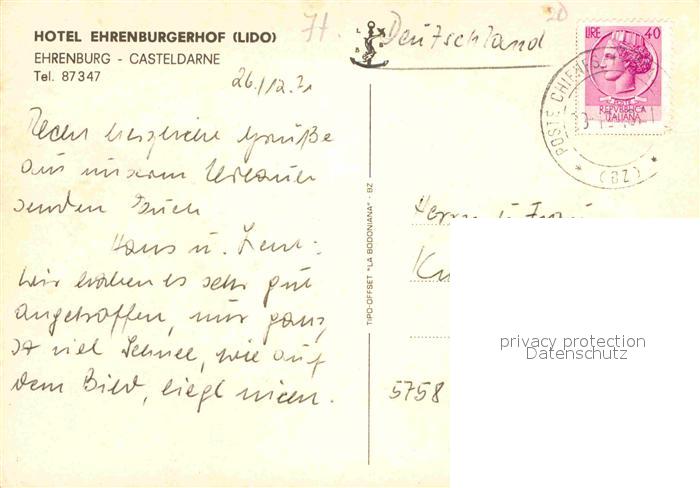 HOTEL EHRENBURGERHOF (LIDO)
EHRENBURG - CASTELDARNE
Tel. 87347
26./12.71
Recht herzliche Grüße
aus unserem Urlaub
senden Euch
Hans u.
Wir haben es sehr gut
angetroffen, nur ganz
so viel Schnee, wie auf
dem Bild, liegt nicht.
TIPO-OFFSET "LA BODONIANA" - BZ
71
20
L B
Deutschland
LIRE 40
POSTE
REPVBBLICA
ITALIANA
POSTE CHIENES
(BZ)
Herrn u. Frau
5758
privacy protection
Datenschutz